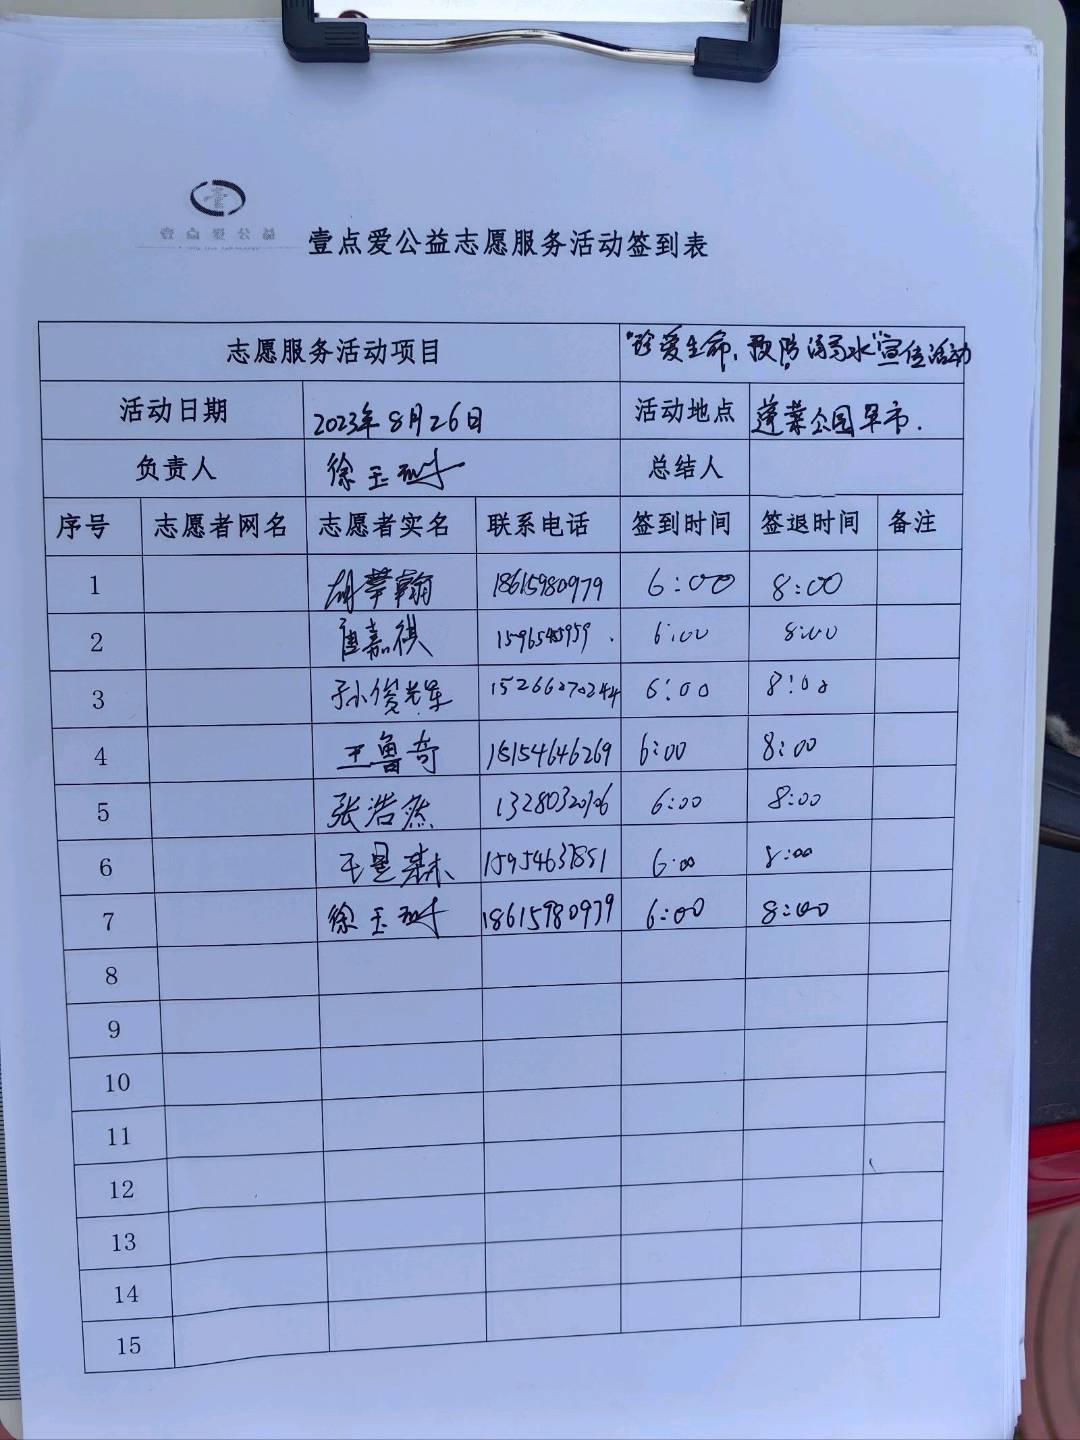 壹点爱公益
壹点爱公益志愿服务活动签到表
志愿服务活动项目 "珍爱生命、预防溺水"宣传活动
活动日期 2023年8月26日 活动地点 蓬莱公园早市.
负责人 徐玉 总结人
序号 志愿者网名 志愿者实名 联系电话 签到时间 签退时间 备注
1 胡 翰 18615980979 6:00 8:00
2 唐嘉祺 6:00 8:00
3 孙俊 15266270244 6:00 8:00
4 王鲁奇 15154646269 6:00 8:00
5 张浩然 6:00 8:00
6 王昱森 15954637851 6:00 8:00
7 徐玉 18615980979 6:00 8:00
8
9
10
11
12
13
14
15